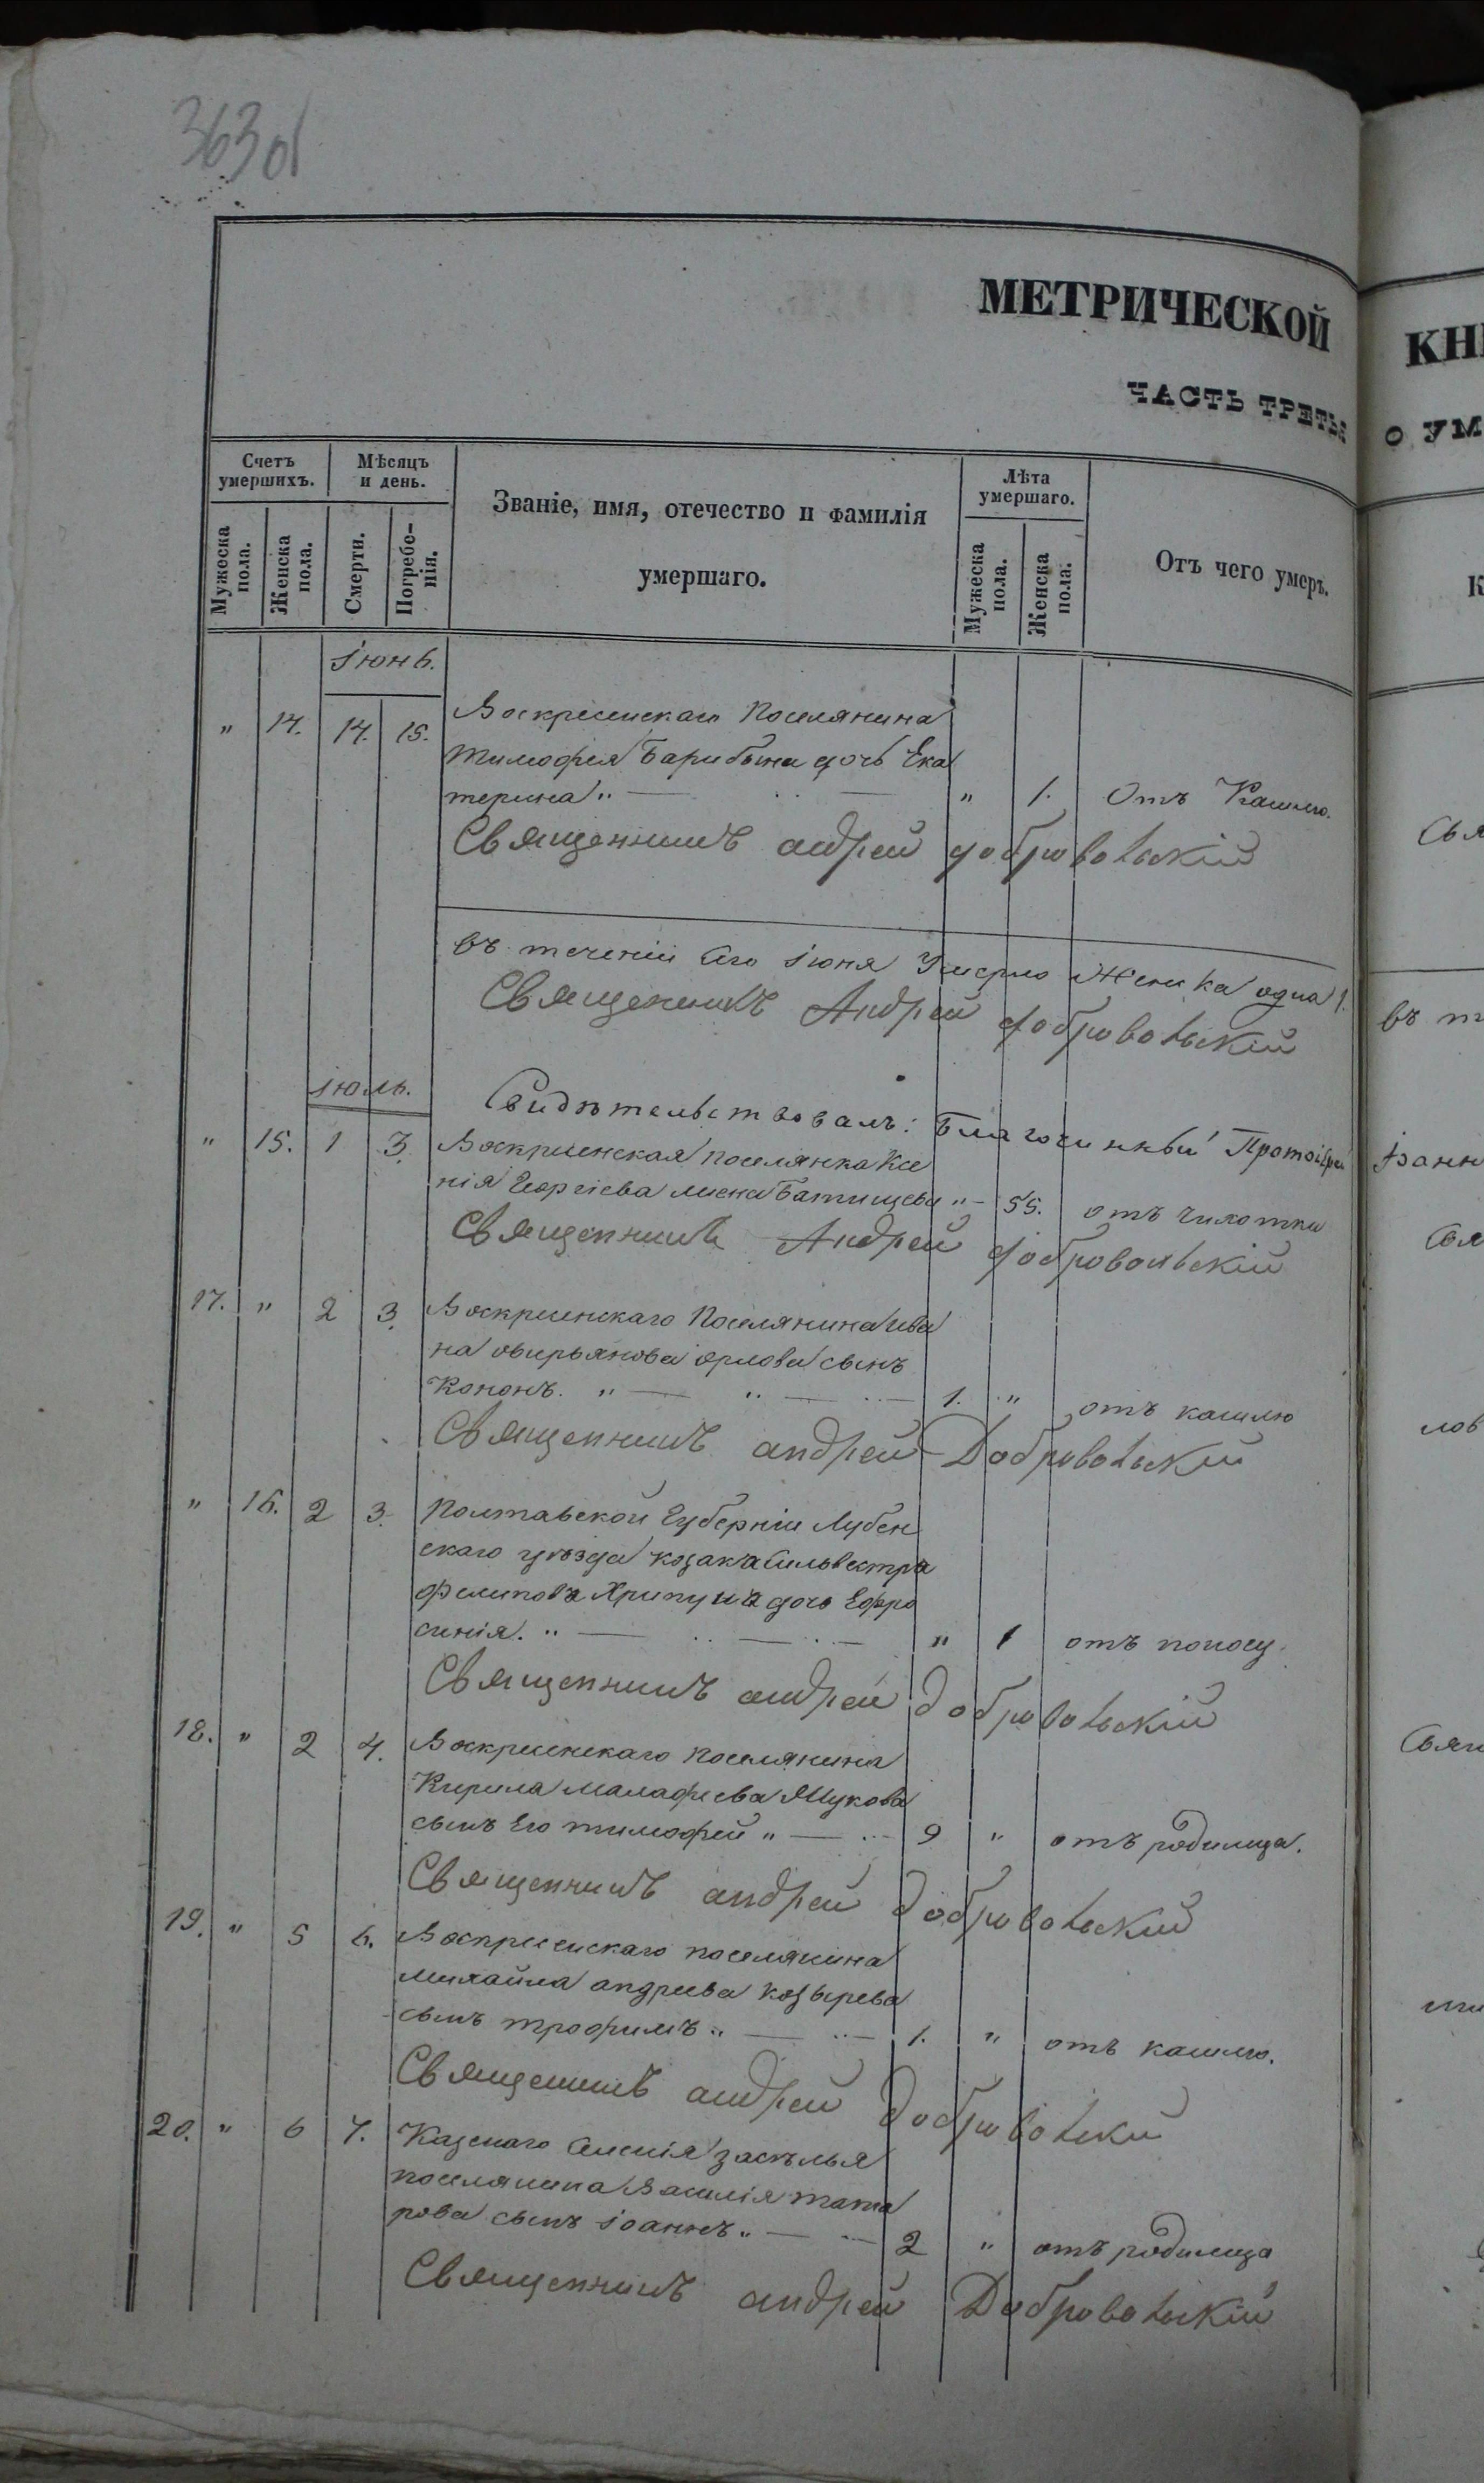 363 об
МЕТРИЧЕСКОЙ
ЧАСТЬ ТРЕТЬЯ
Счетъ умершихъ.
Мѣсяцъ и день.
Званіе, имя, отечество и фамилія умершаго.
Лѣта умершаго.
Отъ чего умеръ.
Мужеска пола.
Женска пола.
Смерти.
Погребенія.
Мужеска пола.
Женска пола.
Іюнь.
" 14. 14. 15. Воскресенскаго Поселянина
Тимофея Барибына дочь Ека
терина " — " 1. Отъ Кашлю.
Священникъ андрей добровольскій
въ теченіи Іюня Умерло Женска одна 1.
Священникъ Андрей добровольскій
Свидѣтельствовалъ: Благочинный Протоіерей
Іюль.
" 15. 1 3. Воскресенская поселянка Ксе
нія Георгіева Батищева " — 55. отъ чихотки
Священникъ Андрей добровольскій
17. " 2 3. Воскресенскаго Поселянина Ива
на орлова сынъ
Кононъ. " — " — 1. " отъ кашлю
Священникъ андрей Добровольскій
" 16. 2 3. Полтавской Губерніи Лубен
скаго уѣзда козака Сильвестра
Филипова Хрипуна дочь Ефро
синія. " — " 1 отъ поносу.
Священникъ андрей добровольскій
18. " 2 4. Воскресенскаго поселянина
Кирила Малафеева Жукова
сынъ Его тимофей " — 9 " отъ родимца.
Священникъ андрей добровольскій
19. " 5 6. Воскресенскаго поселянина
Михайла андреева козырева
сынъ трофимъ " — 1. " отъ кашлю.
Священникъ андрей добровольскій
20. " 6 7. Казенаго
поселянина Василія тата
рова сынъ іоаннъ " — 2 " отъ родимца
Священникъ андрей Добровольскій
КН
О УМ
К
Свя
въ т
Іоанн
Свя
лов
Свящ